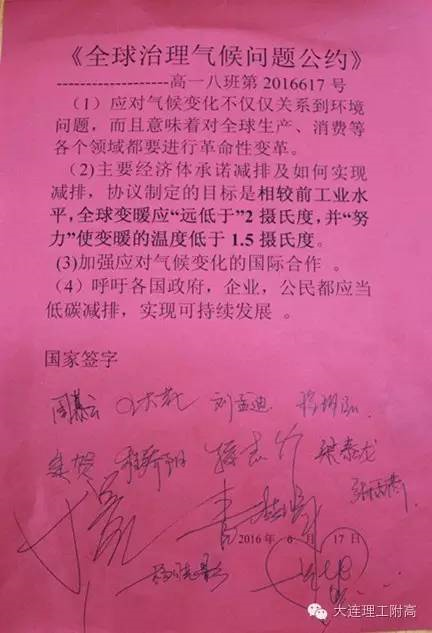 《全球治理气候问题公约》
------------------高一八班第 2016617 号
（1）应对气候变化不仅仅关系到环境
问题，而且意味着对全球生产、消费等
各个领域都要进行革命性变革。
(2)主要经济体承诺减排及如何实现
减排，协议制定的目标是相较前工业水
平，全球变暖应“远低于”2 摄氏度，并“努
力”使变暖的温度低于 1.5 摄氏度。
(3)加强应对气候变化的国际合作 。
（4）呼吁各国政府，企业，公民都应当
低碳减排，实现可持续发展 。
国家签字
刘孟迪
梁泰龙
2016 年 6 月 17 日
大连理工附高